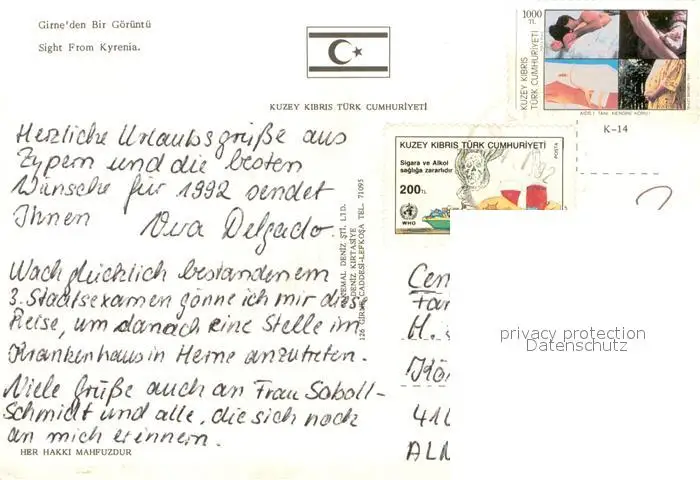 Girne'den Bir Görüntü
Sight From Kyrenia.
KUZEY KIBRIS TÜRK CUMHURİYETİ
1000
TL
KUZEY KIBRIS
TÜRK CUMHURİYETİ
AIDS'İ TANI KENDİNİ KORU!
K-14
KUZEY KIBRIS TÜRK CUMHURİYETİ
Sigara ve Alkol
sağlığa zararlıdır
200TL
WHO
POSTA
Herzliche Urlaubsgrüße aus
Zypern und die besten
Wünsche für 1992 sendet
Ihnen Delgado.
Nach glücklich bestandenem
3. Staatsexamen gönne ich mir diese
Reise, um danach eine Stelle im
Krankenhaus in Herne anzutreten.
Viele Grüße auch an Frau Soboll-
Schmidt und alle, die sich noch
an mich erinnern.
KEMAL DENİZ ŞTİ. LTD.
DENİZ KIRTASİYE
126 GİRNE CADDESİ-LEFKOŞA TEL. 71095
HER HAKKI MAHFUZDUR
Cen
H.
Kön
privacy protection
Datenschutz